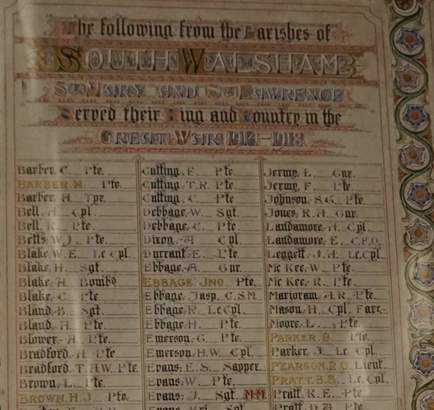 The following from the Parishes of
SOUTH WALSHAM
St MARY AND St LAWRENCE
Served their King and Country in the
GREAT WAR
Barber, C. Pte.
BARBER, H. Pte.
Barber, H. Tpr.
Bell, A. Cpl.
Bell, R. Pte.
Betts, W. J. Pte.
Blake, W. E. L. Cpl.
Blake, H. Sgt.
Blake, A. Bombd
Blake, C. Pte.
Bland, B. Sgt.
Bland, H. Pte.
Blower, A. Pte.
Bradford, H. Pte.
Bradford, T. H. W. Pte.
Brown, L. Pte.
BROWN, H. J. Pte.
Cutting, F. Pte.
Cutting, T. R. Pte.
Cutting, C. Pte.
Debbage, W. Sgt.
Debbage, C. Pte.
Dixon, A. Cpl.
Durrant, E. Pte.
Ebbage, A. Gnr.
EBBAGE, JNO. Pte.
Ebbage, Jasp. C.S.M.
Ebbage, R. L. Cpl.
Ebbage, H. Pte.
Emerson, G. Pte.
Emerson, H. W. Cpl.
Evans, E. S. Sapper.
Evans, W. Pte.
Evans, J. Sgt. MM.
Jermy, L. Gnr.
Jermy, F. Pte.
Johnson, S. G. Pte.
Jones, R. H. Gnr.
Landamore, H. Cpl.
Landamore, E. C.P.O.
Leggett, J. A. L. Cpl.
Mc Kee, W. Pte.
Mc Kee, R. Pte.
Marjoram, A. R. Pte.
Mason, H. Cpl. Farr.
Moore, L. Pte.
PARKER, B. Pte.
Parker, J. L. Cpl.
PEARSON, Lieut.
PRATT, B. S. L. Cpl.
Pratt, R. E. Pte.